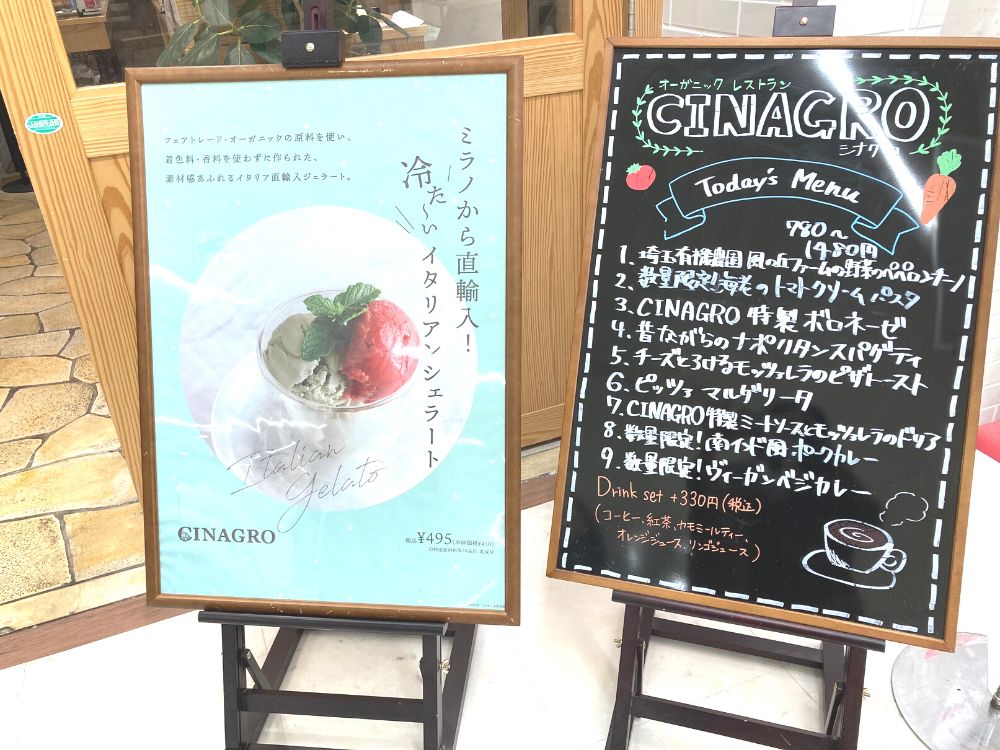 フェアトレード・オーガニックの原料を使い、
着色料・香料を使わずに作られた、
素材感あふれるイタリア直輸入ジェラート。
ミラノから直輸入!
冷た〜いイタリアンジェラート
Italian
gelato
CINAGRO
税込¥495(本体価格¥450)
オーガニック レストラン
CINAGRO
シナグロ
Today's Menu
980〜
1480円
1. 埼玉有機農園 風の丘ファームの野菜のペペロンチーノ
2. 数量限定!海老のトマトクリームパスタ
3. CINAGRO 特製ボロネーゼ
4. 昔ながらのナポリタンスパゲティ
5. チーズとろけるモッツァレラのピザトースト
6. ピッツァ マルゲリータ
7. CINAGRO特製ミートソースとモッツァレラのドリア
8. 数量限定!南インド風ポークカレー
9. 数量限定!ヴィーガンベジカレー
Drink set +330円(税込)
(コーヒー、紅茶、カモミールティー、
オレンジジュース、リンゴジュース)